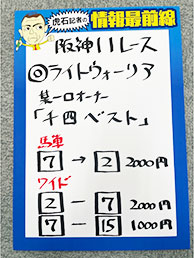 虎石記者の
情報最前線
阪神11レース
◎ライトウォーリア
某一口オーナー
「千四ベスト」
馬単
7→2 2000円
ワイド
2-7 2000円
7-15 1000円